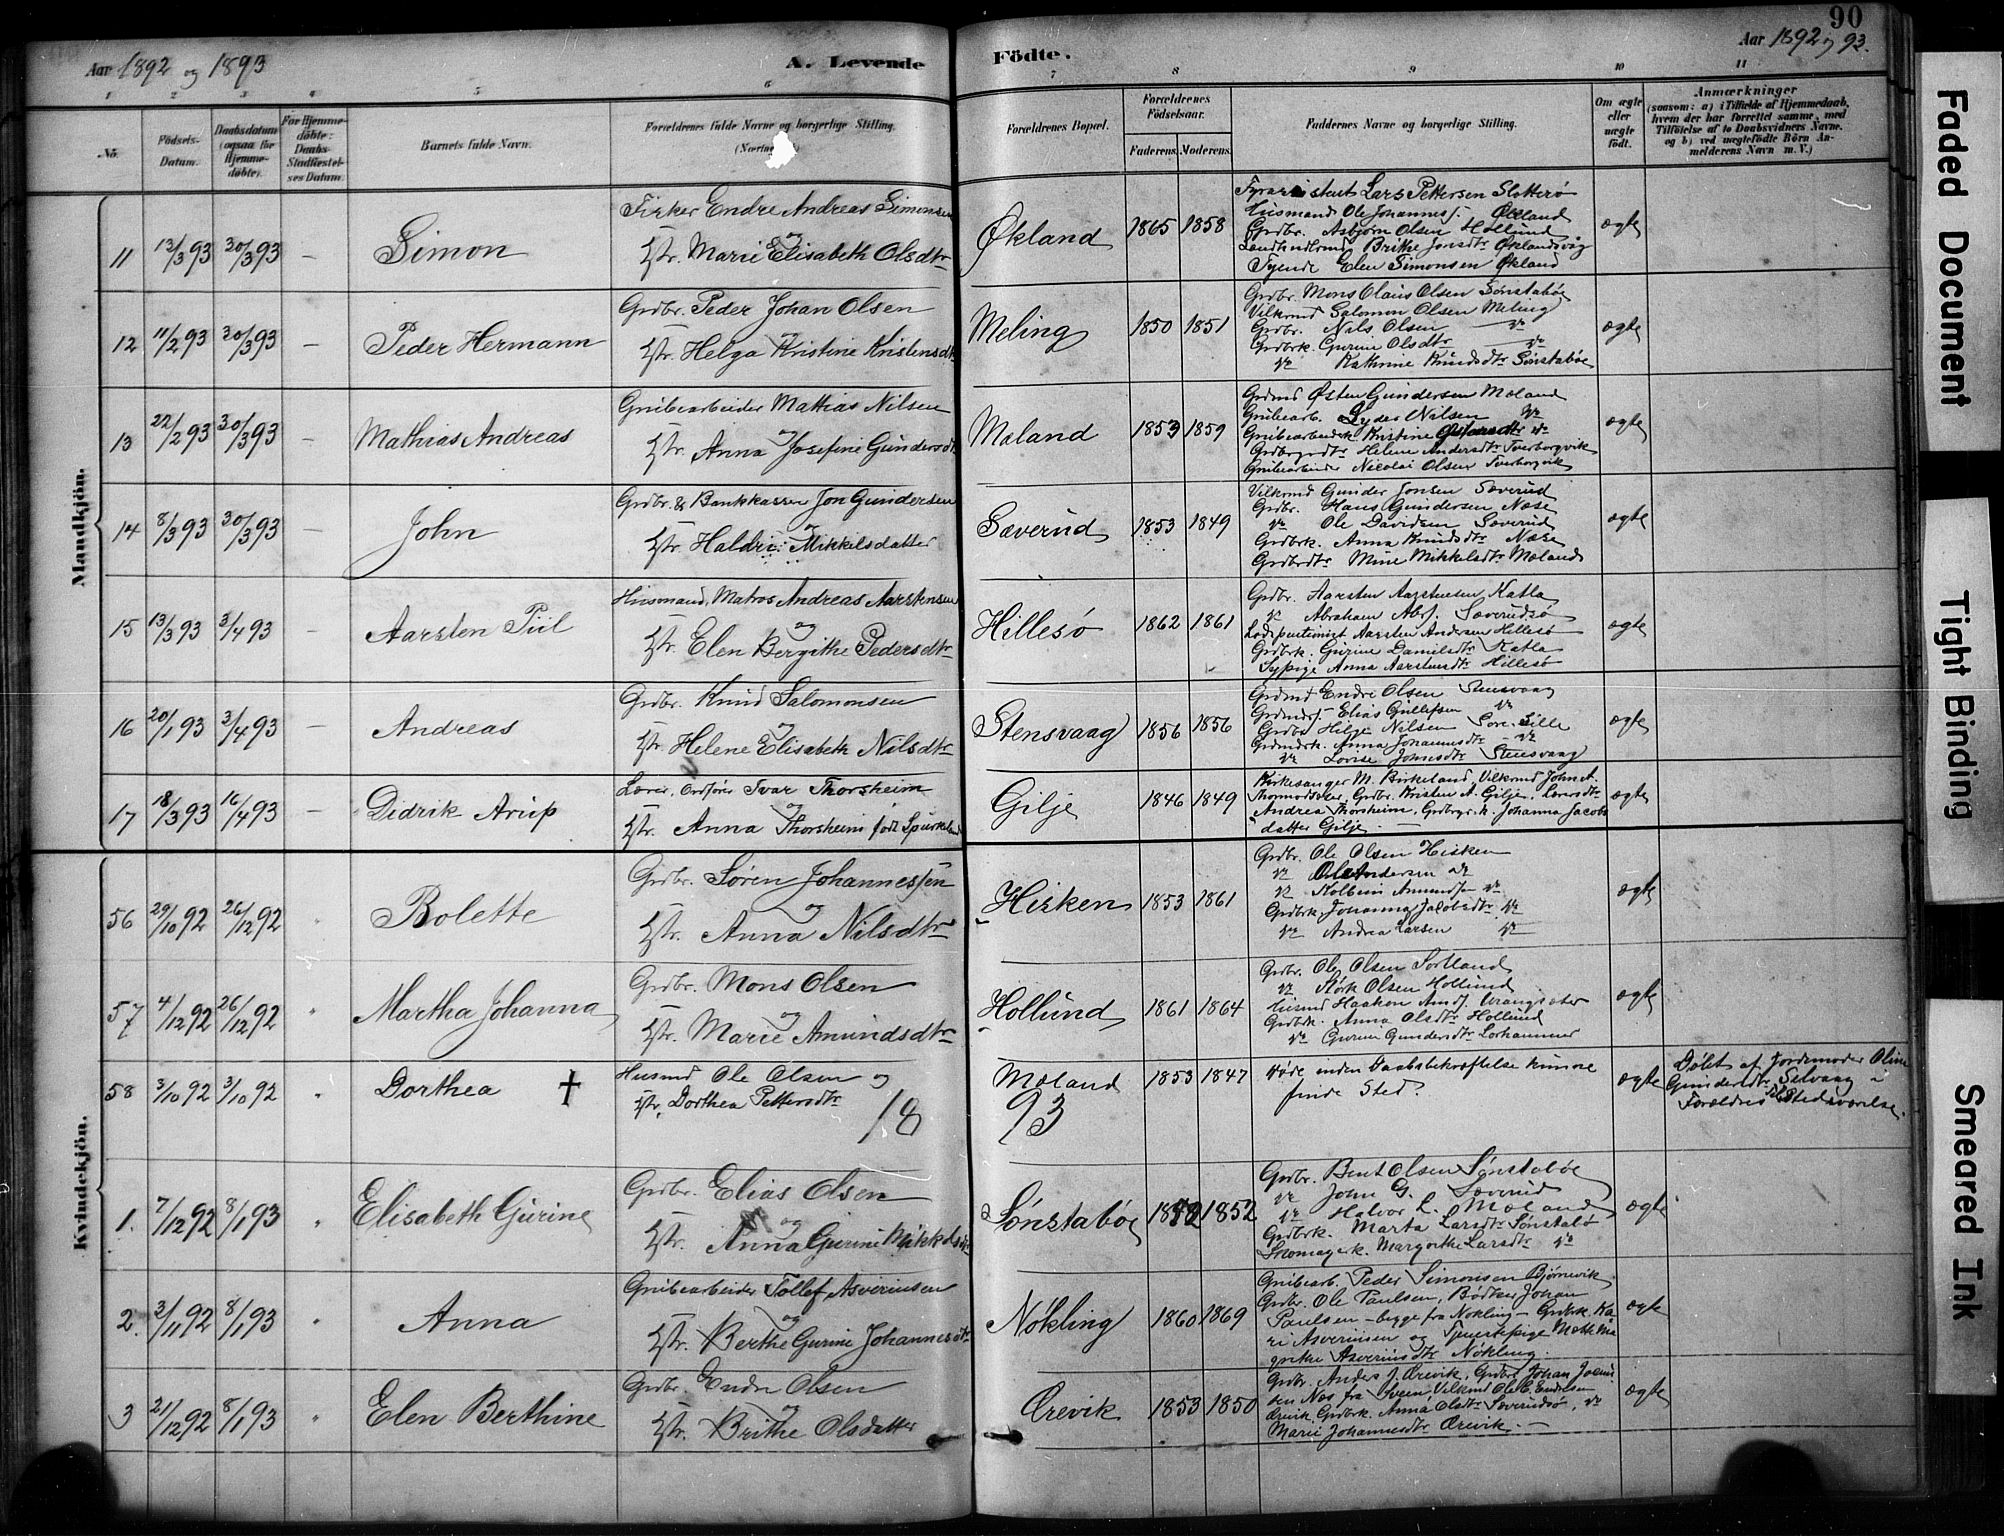 90
Aar 1892 og 1893
A. Levende
Födte.
Aar 1892 og 93.
1 2 3 4 5 6 7 8 9 10 11
No.
Födsels-Datum.
Daabsdatum (ogsaa for Hjemme-döbte).
For Hjemme-döbte: Daabs-Stadfæstel-ses Datum.
Barnets fulde Navn.
Forældrenes fulde Navne og borgerlige Stilling.
Forældrenes Bopæl.
Forældrenes Födselsaar.
Faderens. Moderens.
Faddernes Navne og borgerlige Stilling.
Om ægte eller uægte födt.
Anmærkninger
(saasom: a) i Tilfælde af Hjemmedaab, hvem der har forrettet samme, med Tilföielse af to Daabsvidners Navne, og b) ved uægtefödte Börn Anmelderens Navn m. V.)
Mandkjön.
11 13/3 93 30/3 93 — Simon
Fisker Endre Andreas Simonsen
og
Hstr. Marie Elisabeth Olsdtr
Økland 1865 1858
Lars Pettersen Slotterø
Husmand Ole Johannesf. Økland
Grdbr. Asbjørn Olsen Hollund
Brithe Jonsdtr Øklandsvåg
Tjende Elen Simonsen Økland
ægte
12 11/2 93 30/3 93 — Peder Hermann
Grdbr. Peder Johan Olsen
og
Hstr. Helga Kristine Kristensdtr
Meling 1850 1851
Grdbr. Mons Olaus Olsen Sønstabø
Vilkrmd Salomon Olsen Meling
Grdbr. Nils Olsen do
Grdbrk. Gurine Olsdtr do
do Kathrine Knudsdtr Sønstabøe
ægte
13 22/2 93 30/3 93 — Mathias Andreas
Grubearbeider Mathias Nilsen
og
Hstr. Anna Josefine Gundersdtr
Moland 1853 1859
Grdmd Østen Gundersen Moland
Grubearb. Lyder Nilsen do
Grubearbeiderk. Kristine do
Helene Andersdtr Tverborgvik
Grubearbeider Nicolai Olsen Tverborgvik
ægte
14 8/3 93 30/3 93 — John
Grdbr. & Bankkasser Jon Gundersen
og
Hstr. Haldri Mikkilsdatter
Sæverud 1853 1849
Vilkrmd Gunder Jonsen Sæverud
Grdbr. Hans Gundersen Næse
do Ole Davidsen Sæverud
Grdbrk. Anna Knudsdtr Næse
Grdbrdtr Mine Mikkelsdtr Moland
ægte
15 13/3 93 3/4 93 — Aarsten Piil
Husmand, Matros Andreas Aarstensen
og
Hstr. Elen Bergithe Pedersdtr
Hillesø 1862 1861
Grdbr. Aarsten Aarstensen Katla
do Abraham Abrf. Sæverudsø
Aarsten Andersen Hillesø
Grdbrk. Gurine Danielsdtr Katla
Sypige Anna Aarstensdtr Hillesø
ægte
16 20/1 93 3/4 93 — Andreas
Grdbr. Knud Salomonsen
og
Hstr. Helene Elisabeth Nilsdtr
Stensvaag 1856 1856
Grdmd Endre Olsen Stensvaag
Elias Gullefsen do
Grdbr Helge Nilsen Lille
Anna Johannesdtr do
do Lovise Johnsdtr Stensvaag
ægte
17 18/3 93 16/4 93 — Didrik Arup
Lærer, Ordfører Ivar Thorsheim
og
Hstr. Anna Thorsheim født Spurkeland
Gilje 1846 1849
Kirkesanger M. Birkeland, Vilkrmd John A.
Thormodsæter, Grdbr. Kristen A. Gilje, Lærersdtr
Andrea Thorsheim, Johanna Jacobs
datter Gilje.
ægte
Kvindekjön.
56 29/10 92 26/12 92 " Bolette
Grdbr. Søren Johannessen
og
Hstr. Anna Nilsdtr
Hisken 1853 1861
Grdbr. Ole Olsen Hisken
do Ole Andersen do
do Kolbein Amundsen do
Grdbrk. Johanna Jacobsdtr do
do Andrea Larsen do
ægte
57 4/12 92 26/12 92 " Martha Johanna
Grdbr. Mons Olsen
og
Hstr. Marie Amundsdtr
Hollund 1861 1864
Grdbr. Ole Olsen Sortland
do Størk Olsen Hollund
Husmd Haakon Amdf. Vrangsæter
Grdbrk. Anna Olsdtr Hollund
do Gurine Gundersdtr Lorhammer
ægte
58 3/10 92 3/10 92 " Dorthea †
Husmd Ole Olsen og
Hstr. Dorthea Pettersdtr
Moland 1853 1847
døde inden Daabsbekræftelse kunne
finde Sted.
ægte
Døbt af Jordemoder Oline
Gundersdtr Selvaag i
Forældres Tilstedeværelse.
18 93
1. 7/12 92 8/1 93 " Elisabeth Gurine
Grdbr. Elias Olsen
og
Hstr. Anna Gurine Mikkelsdtr
Sønstabøe 1852 1852
Grdbr. Bent Olsen Sønstabøe
do John G. Sæverud
do Halvor L. Moland
Grdbrk. Marta Larsdtr Sønstabø
Skomagerk. Margrethe Larsdtr do
ægte
2. 3/11 92 8/1 93 " Anna
Grubearbeider Tollef Asverinsen
og
Hstr. Berthe Gurine Johannesdtr
Nøkling 1860 1869
Grubearb. Peder Simonsen Bjørnevik
Grdbr. Ole Paulsen, Bødker Johan
Paulsen — begge fra Nøkling — Grdbrk. Ka
ri Asverinsen og Tjenestepige Marthe Ma
grethe Asverinsdtr Nøkling.
ægte
3 21/12 92 8/1 93 " Elen Berthine
Grdbr. Endre Olsen
og
Hstr. Brithe Olsdatter
Ørevik 1853 1850
Grdbr. Anders J. Ørevik, Grdbr Johan
sen Næs fra Sveen, Vilkrmd Ole E. Endresen
Ørevik, Grdbrk. Anna Olsdtr Sæverudsø, do
Marie Johannesdtr Ørevik. —
ægte
Faded Document
Tight Binding
Smeared Ink